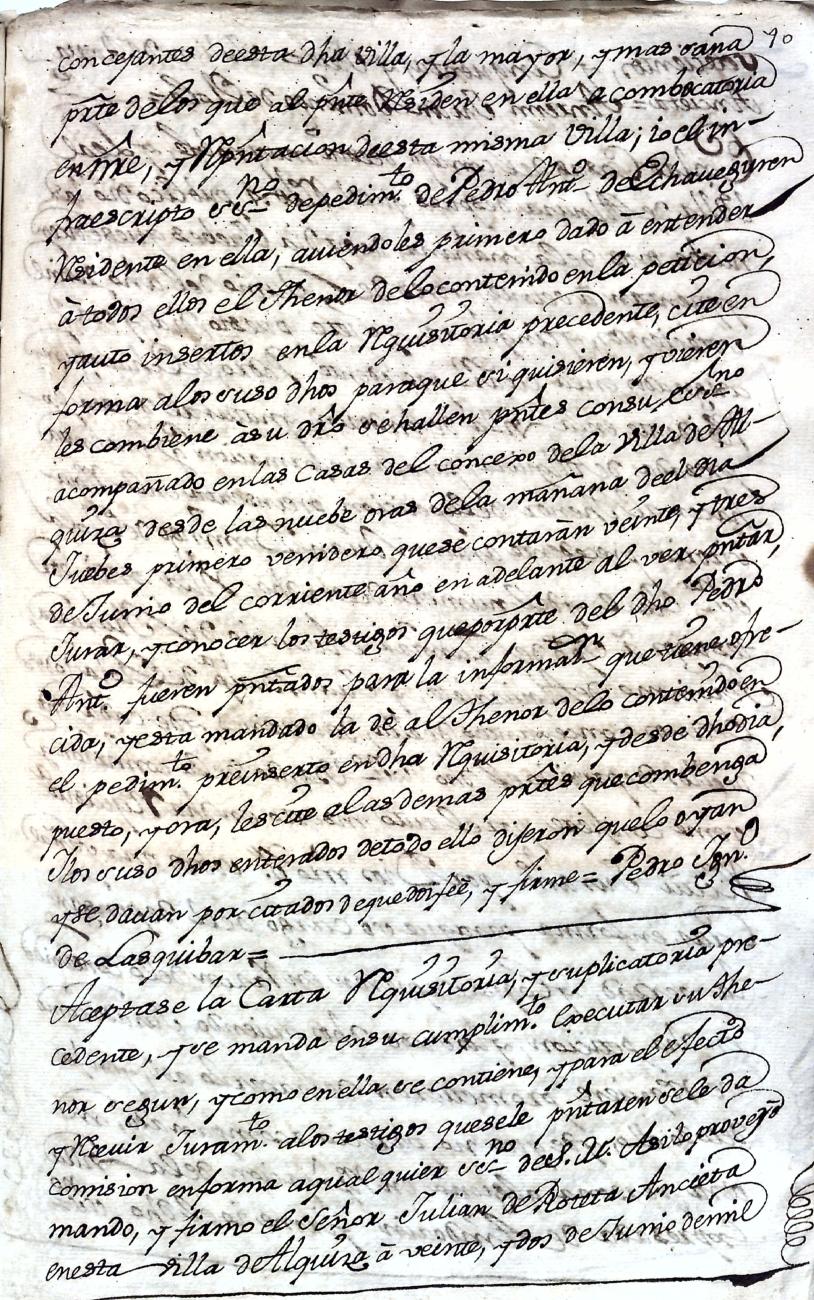 40
concejantes deesta dha villa, y la mayor, y mas sana
prte delos que al pnte Residen en ella a combocatoria
en nre, y Rpntacion deesta misma Villa; io el in-
fraescripto ssno depedimto de Pedro Anto de Echaveguren
Residente en ella, aviendoles primero dado à entender
à todos ellos el Thenor delo contenido en la peticion,
y auto insertos en la Rquisitoria precedente, cite en
forma alos suso dhos paraque si quisieren, y vieren
les combiene àsu dro se hallen pntes consu essno
acompañado en las Casas del concexo dela Villa de Al-
quiza desde las nuebe oras dela mañana deel dia
Juebes primero venidero quesè contaràn veinte, y tres
de Junio del corriente año en adelante al ver pntar,
Jurar, y conocer los testigos que por prte del dho Pedro
Anto fueren pntados para la informaon que tiene ofre-
cida, y esta mandado la dè al Thenor delo contenido en
el pedimto preinserto en dha Rquisitoria, y desde dho dia,
puesto, y ora, les cite alas demas prtes que combenga
I los suso dhos enterados detodo ello dijeron quelo oyan
y se davan por citados de que doi feè, y firme = Pedro Ign.o
de Lasquibar =
Aceptase la Carta Rquisitoria, y suplicatoria pre-
cedente, y se manda ensu cumplimto executar su The-
nor segun, y como en ella se contiene, y para el efecto
y Recivir Juramto alos testigos quesele pntaren se le da
comision en forma a qual quier ssno de S. M. Asi lo proveyò
mando, y firmo el Señor Julian de Roteta Ancieta
enesta villa de Alquiza à veinte, y dos de Junio demil